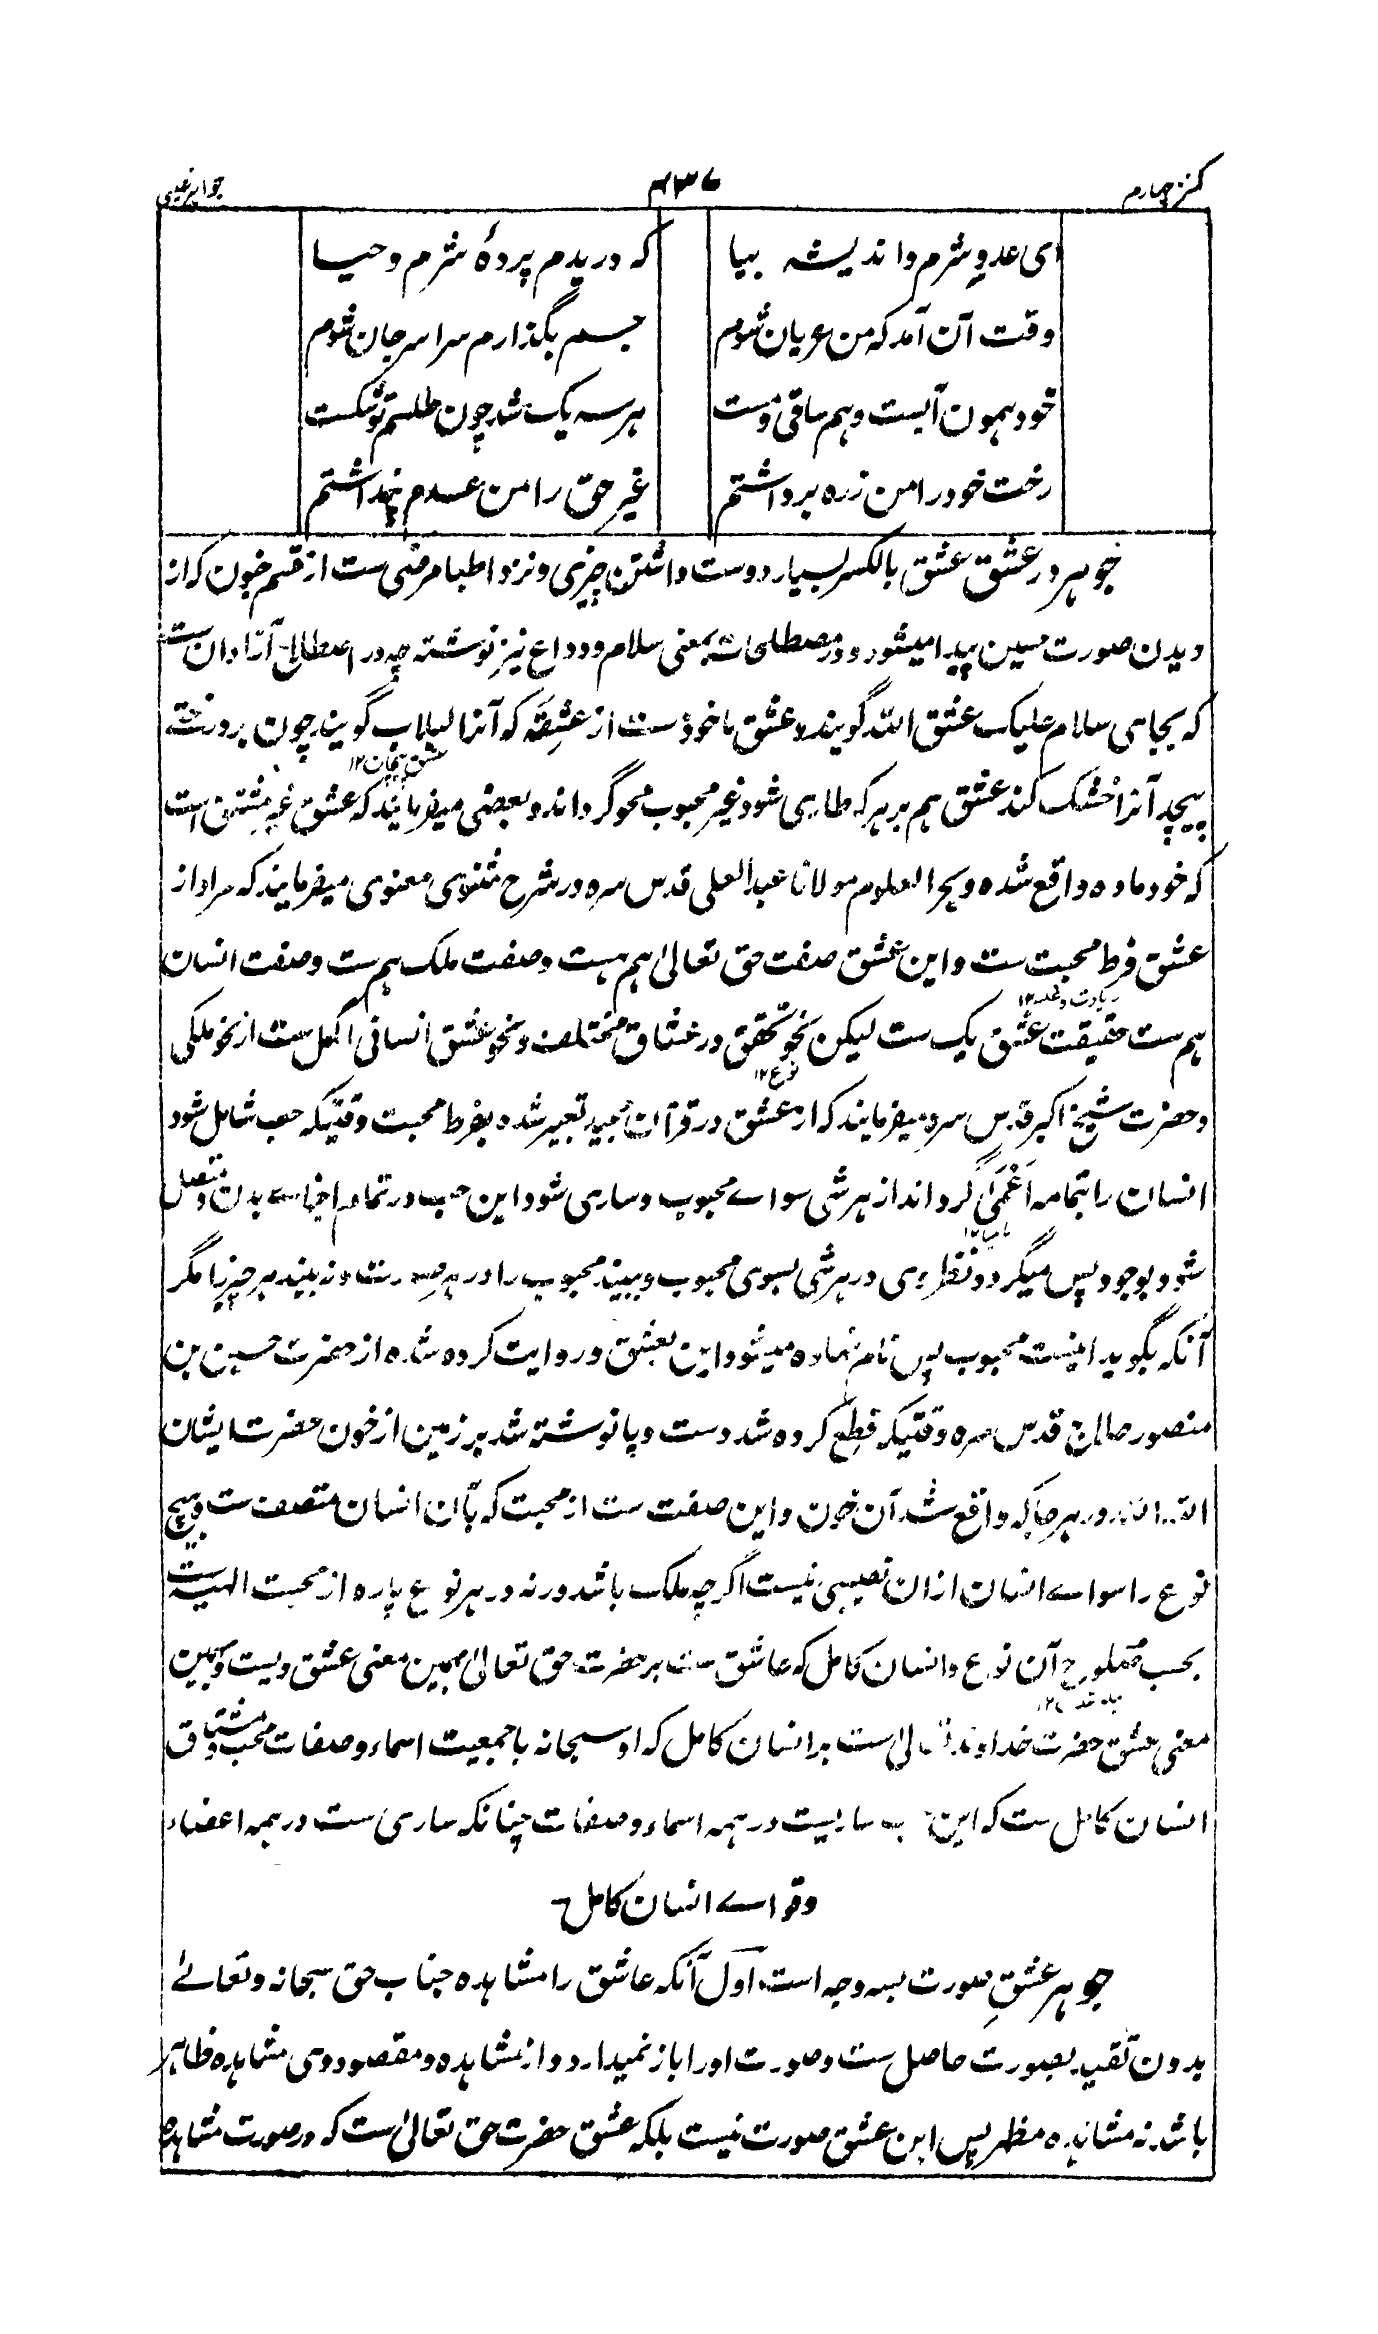 کنز چهارم
۶۳۷
جواهر غیبی
ای عدوِ شرم و اندیشه بیا
که دریدم پردهٔ شرم و حیا
وقت آن آمد که من عریان شوم
جسم بگذارم سراسر جان شوم
خود همون آبست و هم ساقی و مست
هرسه یک شد چون طلسم تو شکست
رخت خود را من ز ره برداشتم
غیر حق را من عدم پنداشتم
جوهر در عشق عشق بالکسر بسیار دوست داشتن چیزی و نزد اطبا مرضی ست از قسم جنون که از
دیدن صورت حسین پیدا میشود و در مصطلحات بمعنی سلام و وداع نیز نوشته چه در اصطلاح آزادان ست
که بجای سلام علیک عشق الله گویند و عشق ماخوذ ست از عَشِقَه که آنرا لبلاب گویند چون بر درخت
عشق پیچان ۱۲
پیچد آنرا خشک کند عشق هم بر هر که طاری شود غیر محبوب محو گرداند و بعضی میفرمایند که عشق غیر مشتق است
که خود ماده واقع شده و بحر العلوم مولانا عبد العلی قدس سره در شرح مثنوی معنوی میفرمایند که مراد از
عشق فرط محبت ست و این عشق صفت حق تعالی هم هست و صفت ملک هم ست و صفت انسان
هم ست حقیقت عشق یک ست لیکن نحو تحقق در عشاق مختلف و نحو عشق انسانی اکمل ست از نحو ملکی
نوع ۱۲
و حضرت شیخ اکبر قدس سره میفرمایند که از عشق در قرآن مجید تعبیر شده بفرط محبت وقتیکه حب شامل شود
انسان را بتمامه اَعْمیٰ گرداند از هر شی سواے محبوب و ساری شود این حب در تمام اجزاے بدن و متصل
نابینا ۱۲
شود بوجود پس میگردد نظر وی در هر شی بسوی محبوب و ببیند محبوب را در هر صورت و نه بیند هر چیز را مگر
آنکه بگوید اینست محبوب پس نام نهاده میشود این بعشق و روایت کرده شده از حضرت حسین بن
منصور حلاج قدس سره وقتیکه قطع کرده شد دست و پا نوشته شد بر زمین از خون حضرت ایشان
الله الله در هر جا که واقع شد آن خون و این صفت ست از محبت که بآن انسان متصف ست و هیچ
نوع را سواے انسان ازان نصیبی نیست اگرچه ملک باشد ورنه در هر نوع پاره از محبت الهیه ست
بحسب آن نوع و انسان کامل که عاشق ست بر حضرت حق تعالی همین معنی عشق ویست و همین
معنی عشق حضرت خداوند تعالی ست بر انسان کامل که او سبحانه با جمعیت اسماء و صفات محب و مشتاق
انسان کامل ست که این حب ساریست در همه اسماء و صفات چنانکه ساری ست در همه اعضاء
و قواے انسان کامل
جوهر عشقِ صورت بسه وجه است اول آنکه عاشق را مشاهده جناب حق سبحانه و تعالےٰ
بدون تقید بصورت حاصل ست و صورت او را باز نمیدارد از مشاهده و مقصود وی مشاهده ظاهر
باشد نه مشاهده مظهر پس این عشق صورت نیست بلکه عشق حضرت حق تعالی ست که در صورت مشاهده